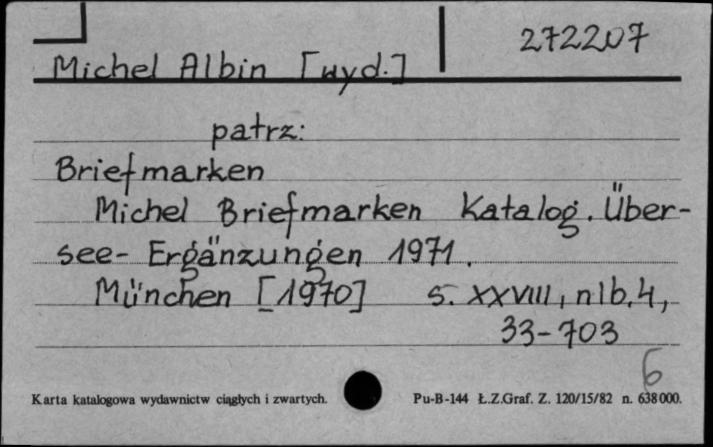 272207
Michel Albin [wyd.]
patrz:
Briefmarken
Michel Briefmarken Katalog. Über-
see- Ergänzungen 1971.
München [1970] s. XXVIII, nlb. 4,
33-703
6
Karta katalogowa wydawnictw ciągłych i zwartych. Pu-B-144 Ł.Z.Graf. Z. 120/15/82 n. 638000.